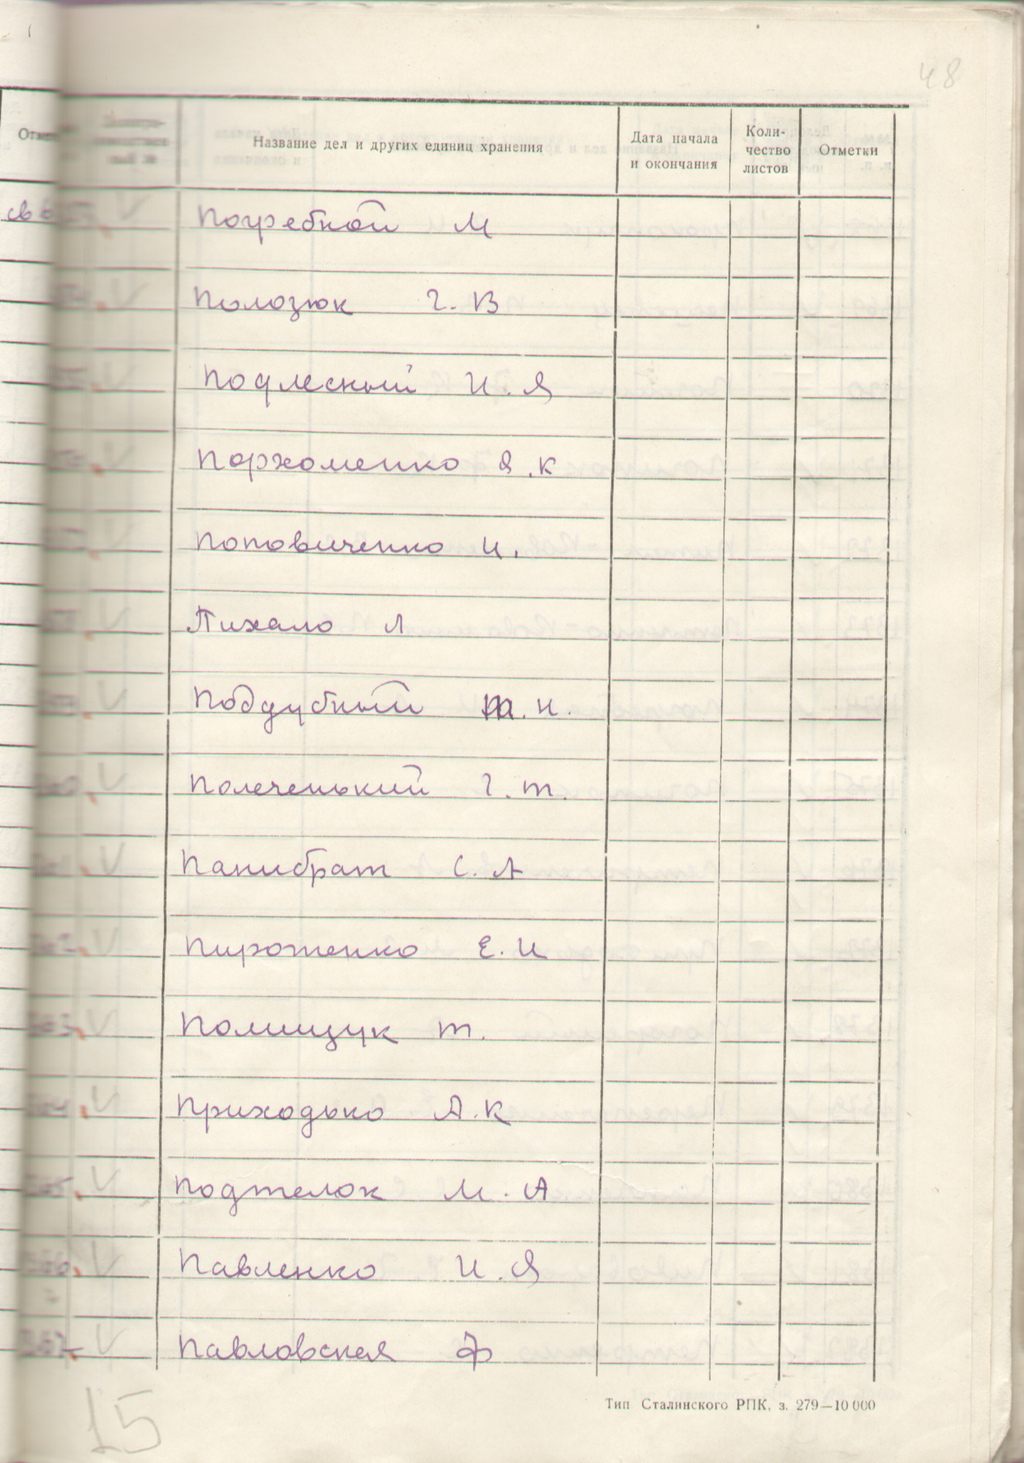 48
Название дел и других единиц хранения
Дата начала и окончания
Коли-чество листов
Отметки
Погребной М
Полозюк Г. В
Подлесный И. Я
Пархоменко Я. К
Поповиченко И.
Пихало Л
Поддубный М. И.
Полеченький Г. Т.
Панибрат С. А
Пироженко Е. И
Полищук Т.
Приходько А. К
Подтелок М. А
Павленко И. Я
Павловская Ф
15
Тип Сталинского РПК, з. 279—10 000